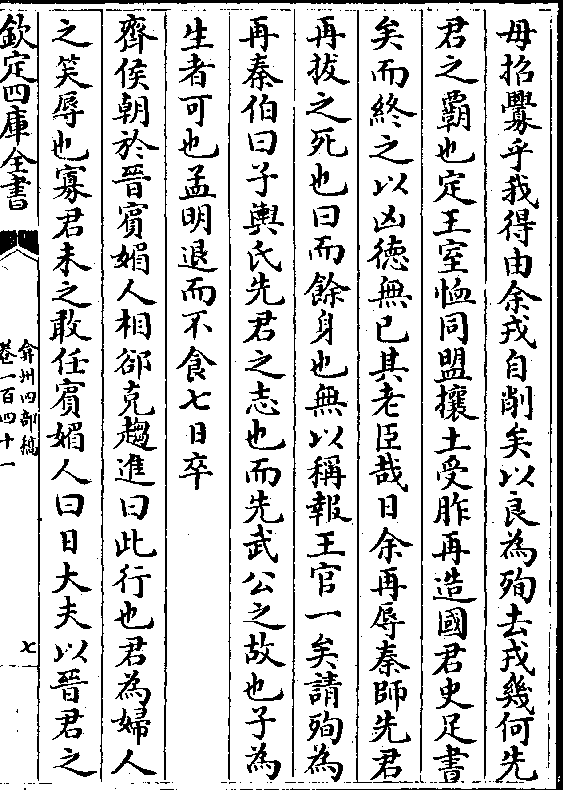 毋招釁乎我得由余戎自削矣以良為殉去戎幾何先
君之霸也定王室恤同盟攘土受胙再造國君史足書
矣而終之以凶德無已其老臣哉日余再辱秦師先君
再拔之死也曰而餘身也無以稱報王官一矣請殉為
再秦伯曰子輿氏先君之志也而先武公之故也子為
生者可也孟明退而不食七日卒
齊侯朝於晉賓媚人相郤克趨進曰此行也君為婦人
之笑辱也寡君未之敢任賓媚人曰日大夫以晉君之
欽定四庫全書
弇州四部稿
卷一百四十一
七